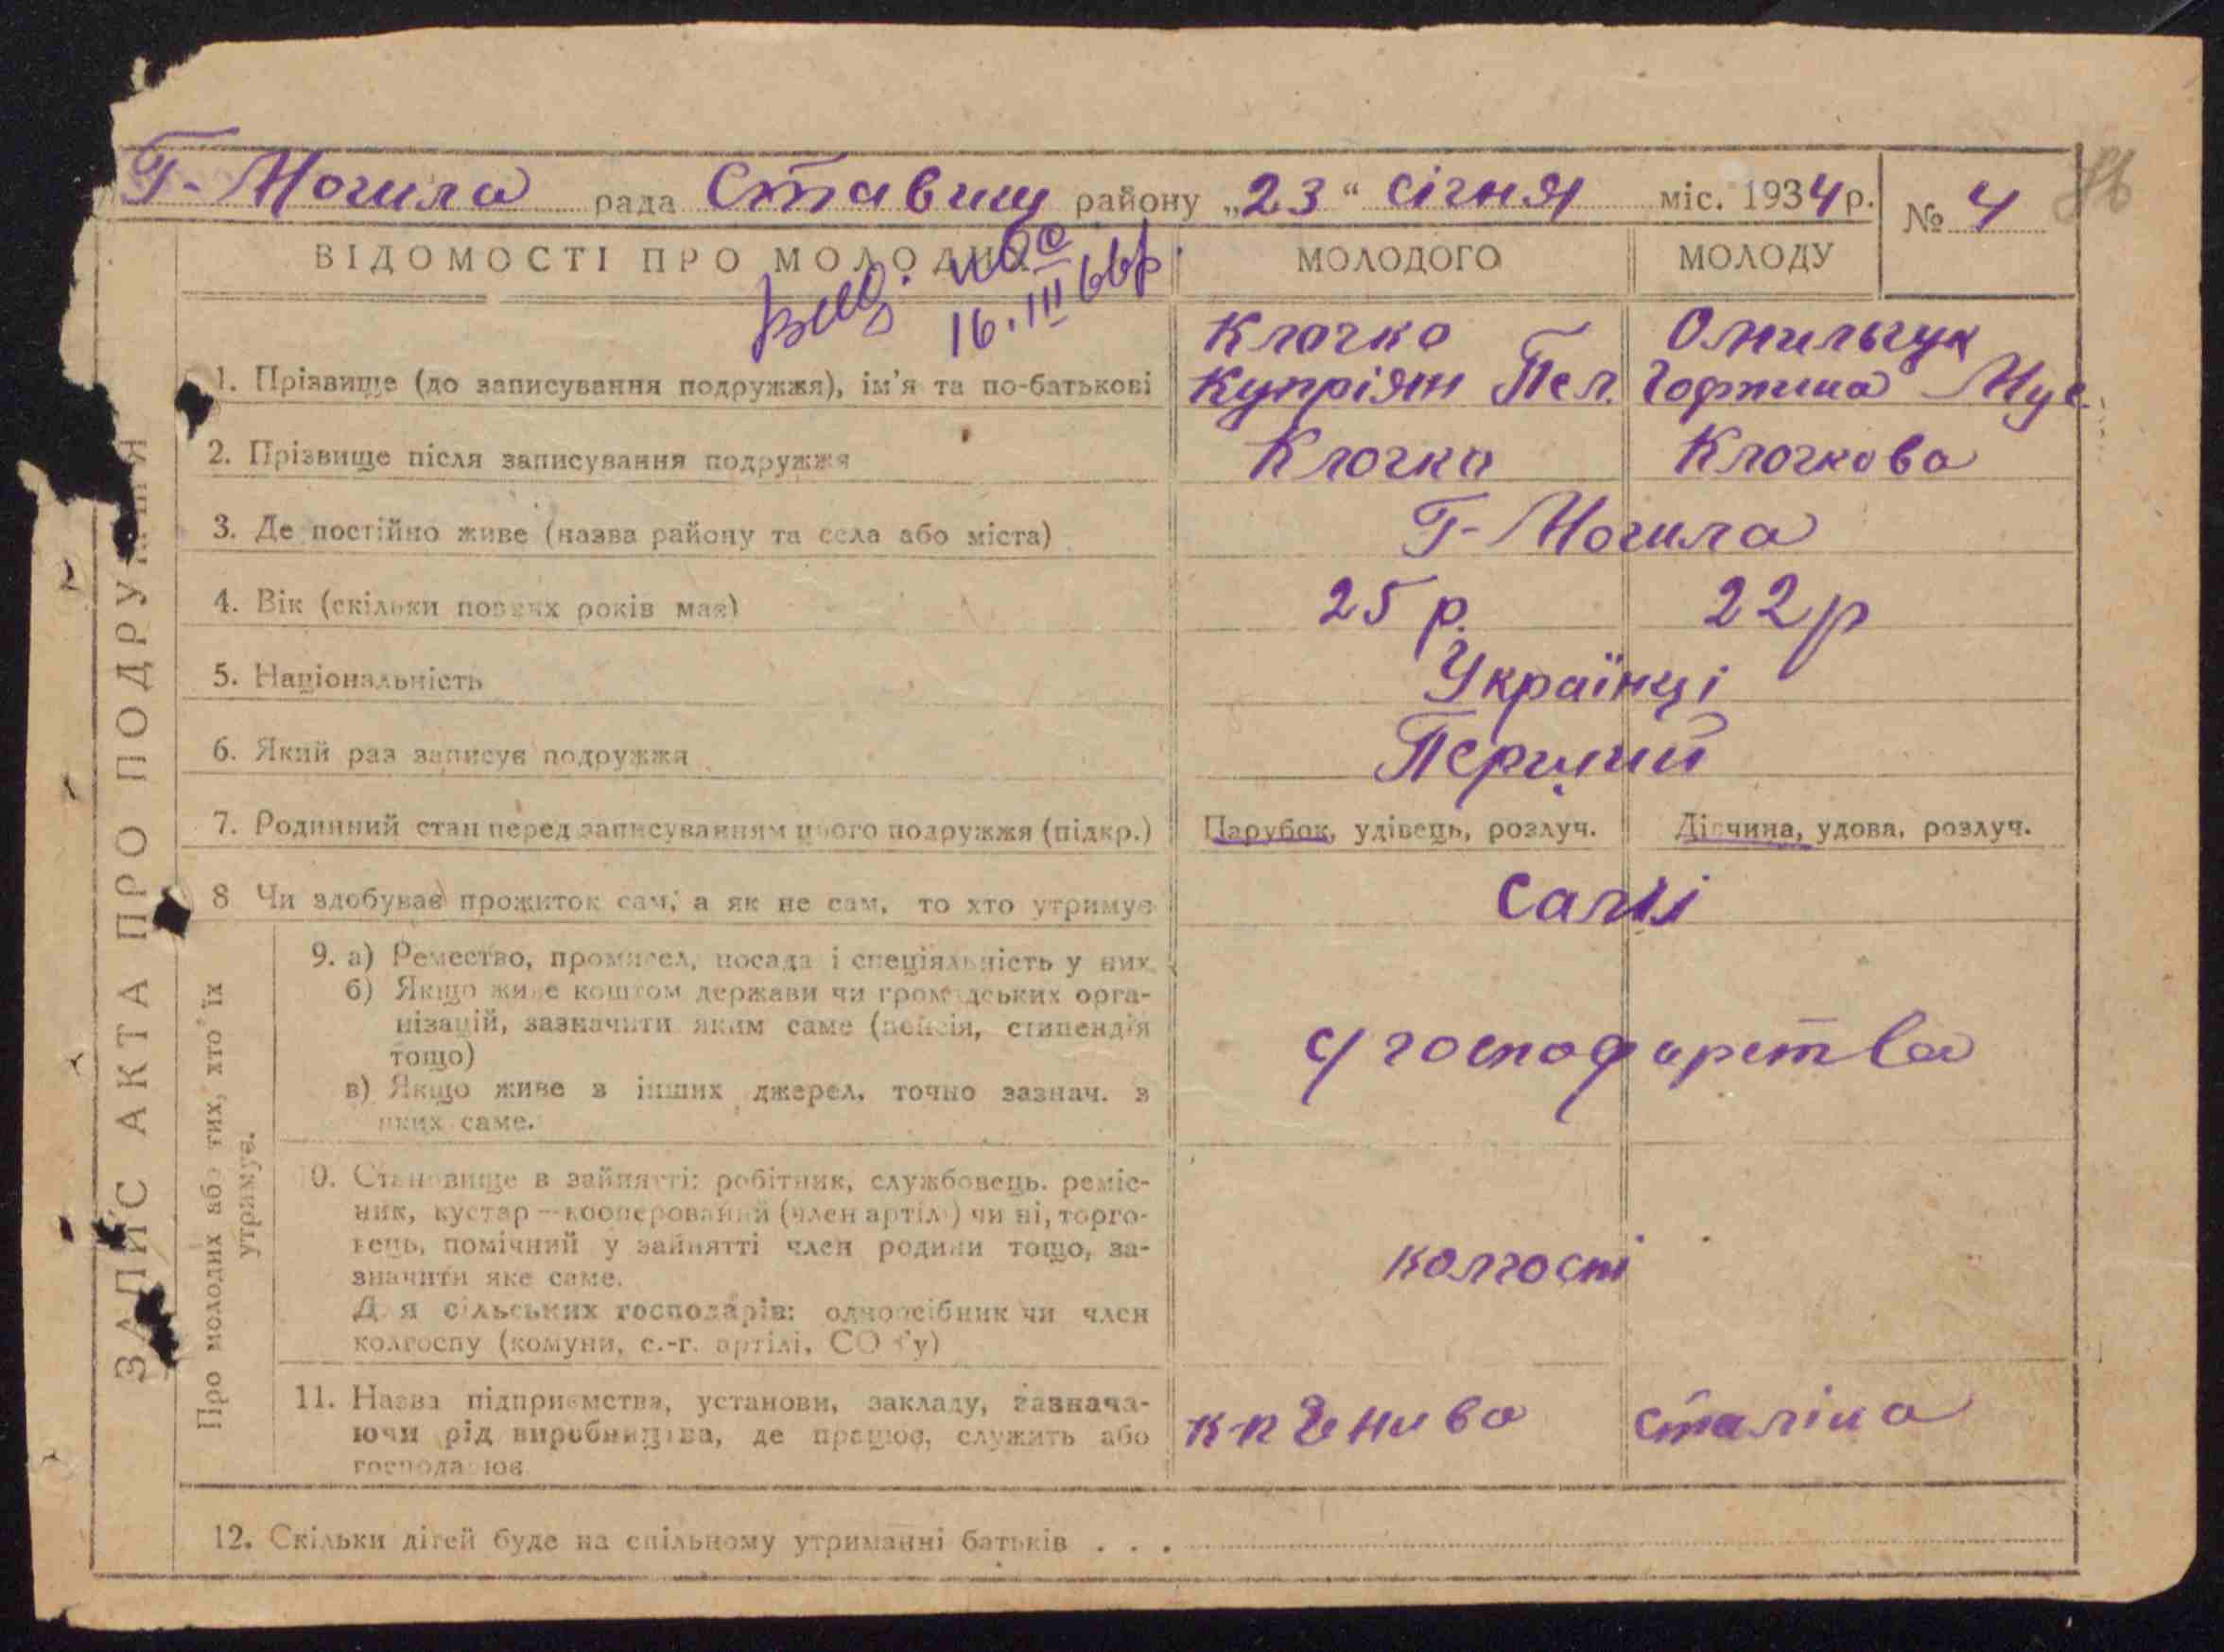 Г-Могила рада Ставищ району „23“ січня міс. 1934 р. № 4
ВІДОМОСТІ ПРО МОЛОДИХ МОЛОДОГО МОЛОДУ
16.III 66р
ЗАПИС АКТА ПРО ПОДРУЖЖЯ
1. Прізвище (до записування подружжя), ім’я та по-батькові
Клочко
Купріян Пел.
Омильчук
Горпина Мус
2. Прізвище після записування подружжя Клочко Клочкова
3. Де постійно живе (назва району та села або міста) Г-Могила
4. Вік (скільки повних років має) 25 р. 22 р
5. Національність Українці
6. Який раз записує подружжя Перший
7. Родинний стан перед записуванням цього подружжя (підкр.) Парубок, удівець, розлуч. Дівчина, удова, розлуч.
8 Чи здобуває прожиток сам, а як не сам, то хто утримує Самі
Про молодих або тих, хто їх
утримує.
9. а) Ремество, промисел, посада і спеціяльність у них
б) Якщо живе коштом держави чи громадських орга-
нізацій, зазначити яким саме (пенсія, стипендія
тощо)
в) Якщо живе з інших джерел, точно зазнач. з
яких саме.
с/господарства
10. Становище в зайнятті: робітник, службовець, реміс-
ник, кустар — кооперований (член артілі) чи ні, торго-
вець, помічний у зайнятті член родини тощо, за-
значити яке саме.
Для сільських господарів: одноосібник чи член
колгоспу (комуни, с.-г. артілі, СОЗ’у)
колгоспі
11. Назва підприємства, установи, закладу, зазнача-
ючи рід виробництва, де працює, служить або
господарює
сталіна
12. Скільки дітей буде на спільному утриманні батьків . . .